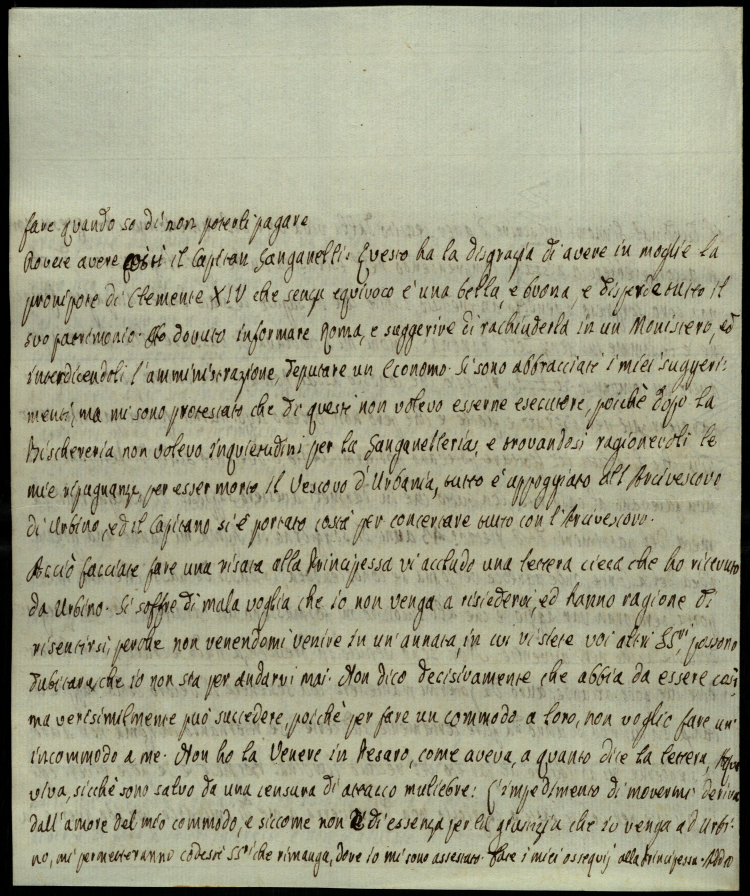 fare quando so di non poterti pagare
Dovete avere costì il Capitan Ganganelli. Questo ha la disgrazia di avere in moglie la
pronipote di Clemente XIV che senza equivoco è una bella, e buona, e disperde tutto il
suo patrimonio. Ho dovuto informare Roma, e suggerire di rachiuderla in un Monistero, ed
interdicendoli l'amministrazione, deputare un Economo. Si sono abbracciati i miei suggeri=
menti, ma mi sono protestato che di questi non volevo esserne esecutore, poichè dopo la
Bischeveria non volevo inquietudini per la Ganganelleria, e trovandosi ragionevoli le
mie ripugnanze, per esser morto il Vescovo d'Urbania, tutto è appoggiato all'Arcivescovo
di Urbino, ed il Capitano si è portato costà per concertare tutto con l'Arcivescovo.
Acciò facciate fare una risata alla Principessa vi accludo una lettera cieca che ho ricevuto
da Urbino. Si soffre di mala voglia che io non venga a risiedervi, ed hanno ragione di
risentirsi, perchè non venendomi venire in un'annata, in cui vi siete voi altri SS.ri, possono
dubitare, che io non sia per andarvi mai. Non dico decisivamente che abbia da essere così,
ma verisimilmente può succedere, poichè per fare un commodo a loro, non voglio fare un'
incommodo a me. Non ho la Venere in Pesaro, come aveva, a quanto dice la lettera,
viva, sicchè sono salvo da una censura di attacco muliebre: L'impedimento di movermi deriva
dall'amore del mio commodo, e siccome non è di essenza per la giustizia che io venga ad Urbi=
no, mi permetteranno codesti SS.ri che rimanga, dove io mi sono assestato. Fate i miei ossequj alla Principessa. Addio